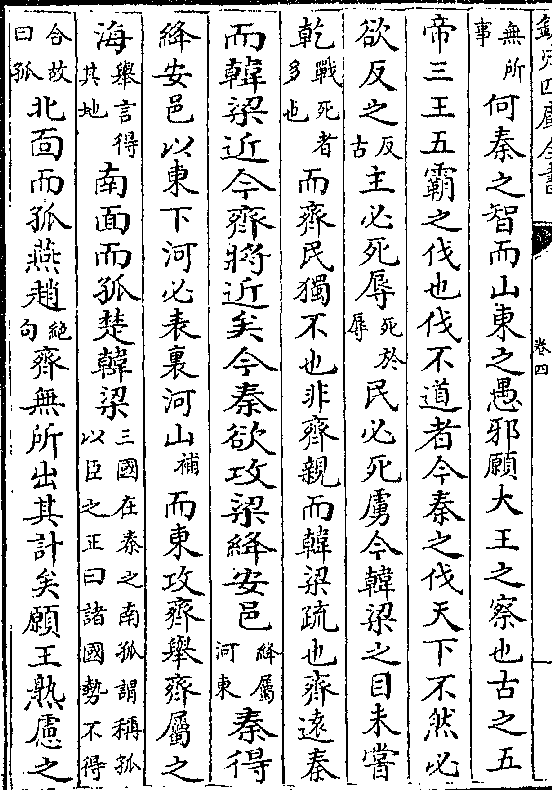 欽定四庫全書 卷四
無所事何秦之智而山東之愚邪願大王之察也古之五
帝三王五霸之伐也伐不道者今秦之伐天下不然必
欲反之反古主必死辱死於辱民必死虜今韓梁之目未嘗
乾戰死者多也而齊民獨不也非齊親而韓梁疏也齊遠秦
而韓梁近今齊將近矣今秦欲攻梁絳安邑絳屬河東秦得
絳安邑以東下河必表裏河山補而東攻齊舉齊屬之
海舉言得其地南面而孤楚韓梁三國在秦之南孤謂稱孤以臣之正曰諸國勢不得
合故曰孤北面而孤燕趙絶句齊無所出其計矣願王熟慮之